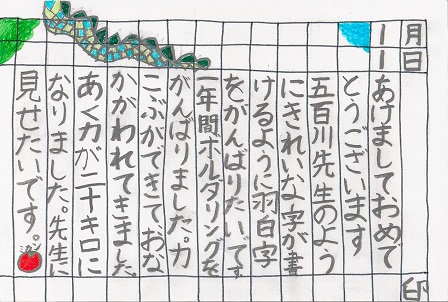 月日
一一
印
あけましておめで
とうございます
五百川先生のよう
にきれいな字が書
けるように習字
をがんばりたいです。
一年間ボルタリングを
がんばりました。力
こぶができておな
かがわれてきました。
あく力が二十キロに
なりました。先生に
見せたいです。
ミカン